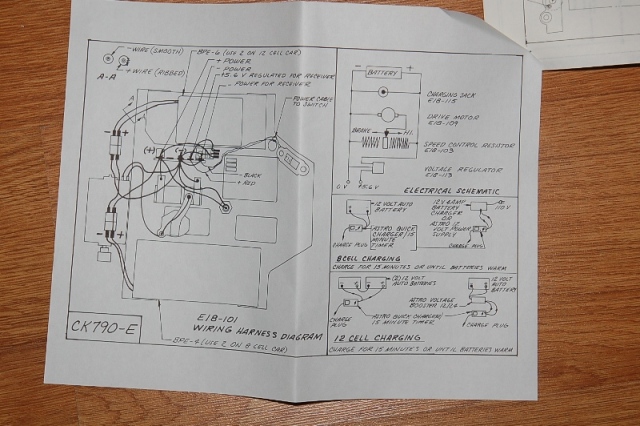 - WIRE (SMOOTH)
+ WIRE (RIBBED)
A-A
BPE-6 (USE 2 ON 12 CELL CAR)
+ POWER
- POWER
+5.6 V REGULATED FOR RECEIVER
- POWER FOR RECEIVER
POWER CABLE
TO SWITCH
- +
- +
(+)
(-)
BLACK
+ RED
E18-101
WIRING HARNESS DIAGRAM
CK790-E
BPE-4 (USE 2 ON 8 CELL CAR)
- +
BATTERY
CHARGING JACK
E18-115
DRIVE MOTOR
E18-109
BRAKE HI.
SPEED CONTROL RESISTOR
E18-103
VOLTAGE REGULATOR
E18-113
0 V +5.6V
ELECTRICAL SCHEMATIC
12 VOLT AUTO
BATTERY
ASTRO QUICK
CHARGER/15
MINUTE
TIMER
CHARGE PLUG
12 V 4 AMP
BATTERY
CHARGER
OR
ASTRO 12
VOLT POWER
SUPPLY
110 V
CHARGE PLUG
8 CELL CHARGING
CHARGE FOR 15 MINUTES OR UNTIL BATTERIES WARM
(2) 12 VOLT
AUTO BATTERIES
12 VOLT
AUTO
BATTERY
ASTRO VOLTAGE
BOOSTER 12/24
ASTRO QUICK CHARGER/
15 MINUTE TIMER
CHARGE
PLUG
CHARGE PLUG
12 CELL CHARGING
CHARGE FOR 15 MINUTES OR UNTIL BATTERIES WARM